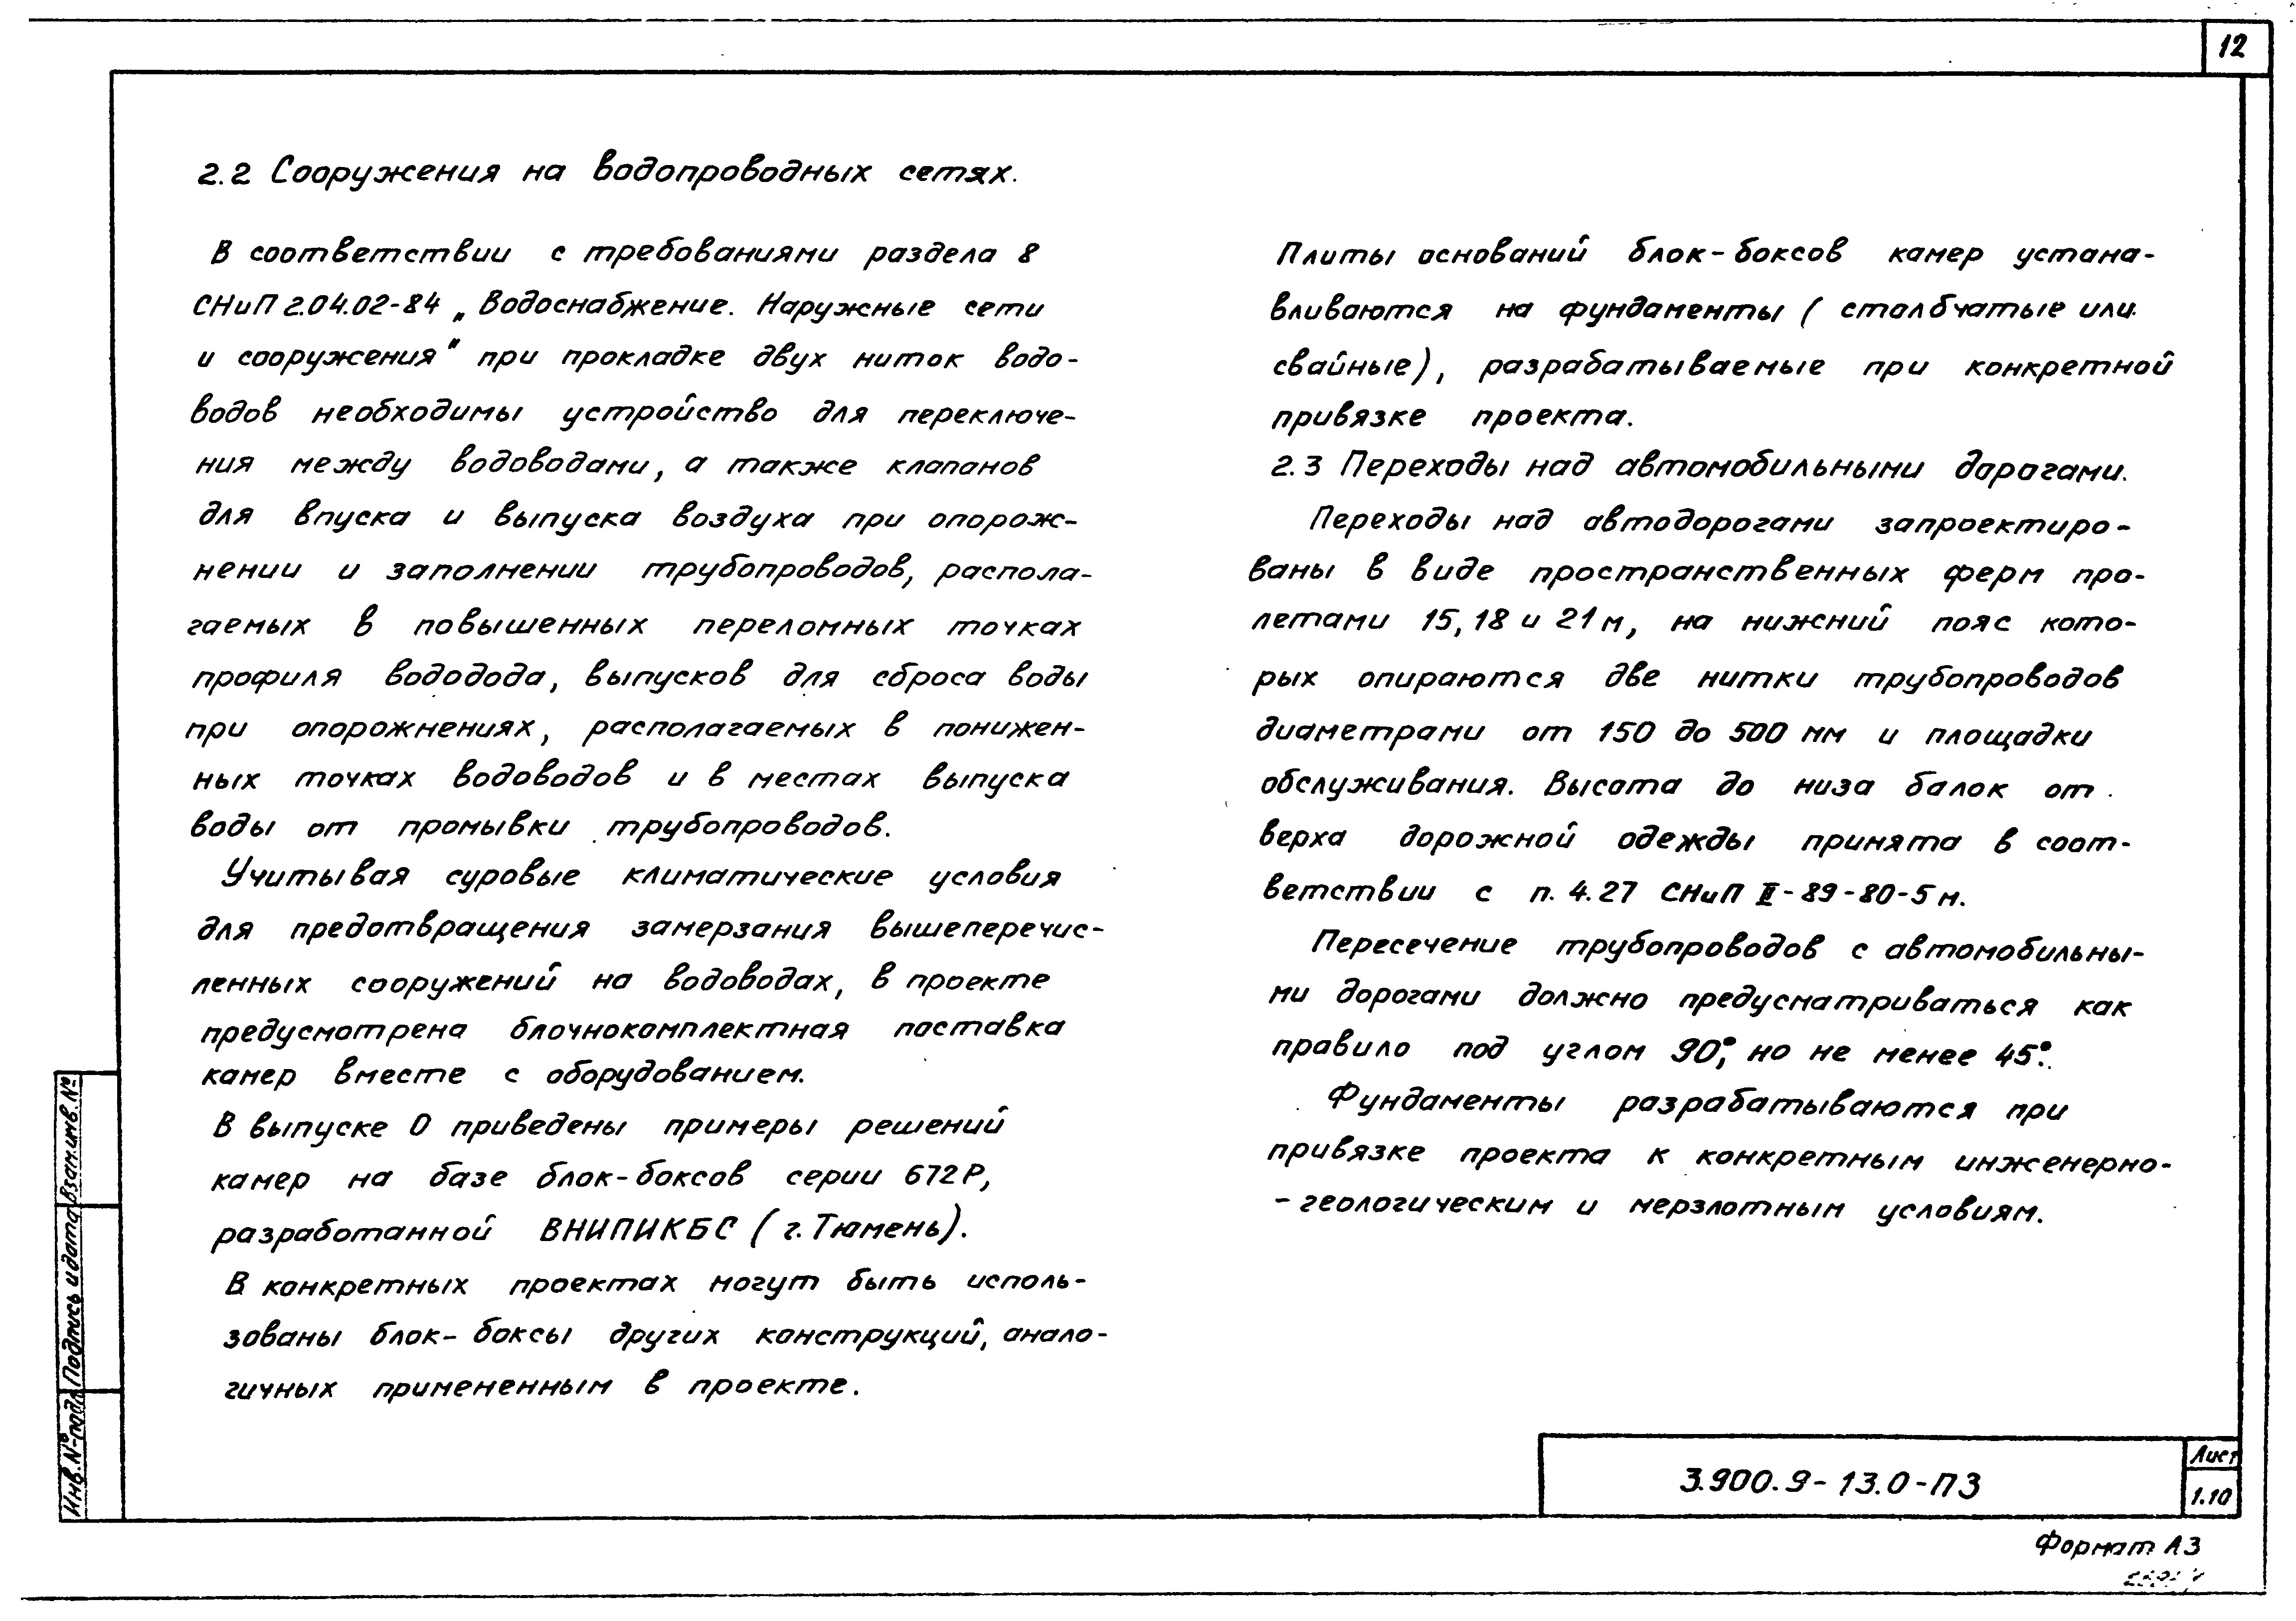 12
2.2 Сооружения на водопроводных сетях.
В соответствии с требованиями раздела 8
СНиП 2.04.02-84 „Водоснабжение. Наружные сети
и сооружения" при прокладке двух ниток водо-
водов необходимы устройство для переключе-
ния между водоводами, а также клапанов
для впуска и выпуска воздуха при опорож-
нении и заполнении трубопроводов, распола-
гаемых в повышенных переломных точках
профиля вододода, выпусков для сброса воды
при опорожнениях, располагаемых в понижен-
ных точках водоводов и в местах выпуска
воды от промывки трубопроводов.
Учитывая суровые климатические условия
для предотвращения замерзания вышеперечис-
ленных сооружений на водоводах, в проекте
предусмотрена блочнокомплектная поставка
камер вместе с оборудованием.
В выпуске 0 приведены примеры решений
камер на базе блок-боксов серии 672Р,
разработанной ВНИПИКБС (г. Тюмень).
В конкретных проектах могут быть исполь-
зованы блок-боксы других конструкций, анало-
гичных примененным в проекте.
Плиты оснований блок-боксов камер устана-
вливаются на фундаменты (столбчатые или
свайные), разрабатываемые при конкретной
привязке проекта.
2.3 Переходы над автомобильными дорогами.
Переходы над автодорогами запроектиро-
ваны в виде пространственных ферм про-
летами 15, 18 и 21м, на нижний пояс кото-
рых опираются две нитки трубопроводов
диаметрами от 150 до 500 мм и площадки
обслуживания. Высота до низа балок от
верха дорожной одежды принята в соот-
ветствии с п. 4.27 СНиП II-89-80-5м.
Пересечение трубопроводов с автомобильны-
ми дорогами должно предусматриваться как
правило под углом 90°, но не менее 45°.
Фундаменты разрабатываются при
привязке проекта к конкретным инженерно-
-геологическим и мерзлотным условиям.
Инв.№подл. Подпись и дата Взам.инв.№
3.900.9-13.0-ПЗ
Лист
1.10
Формат А3